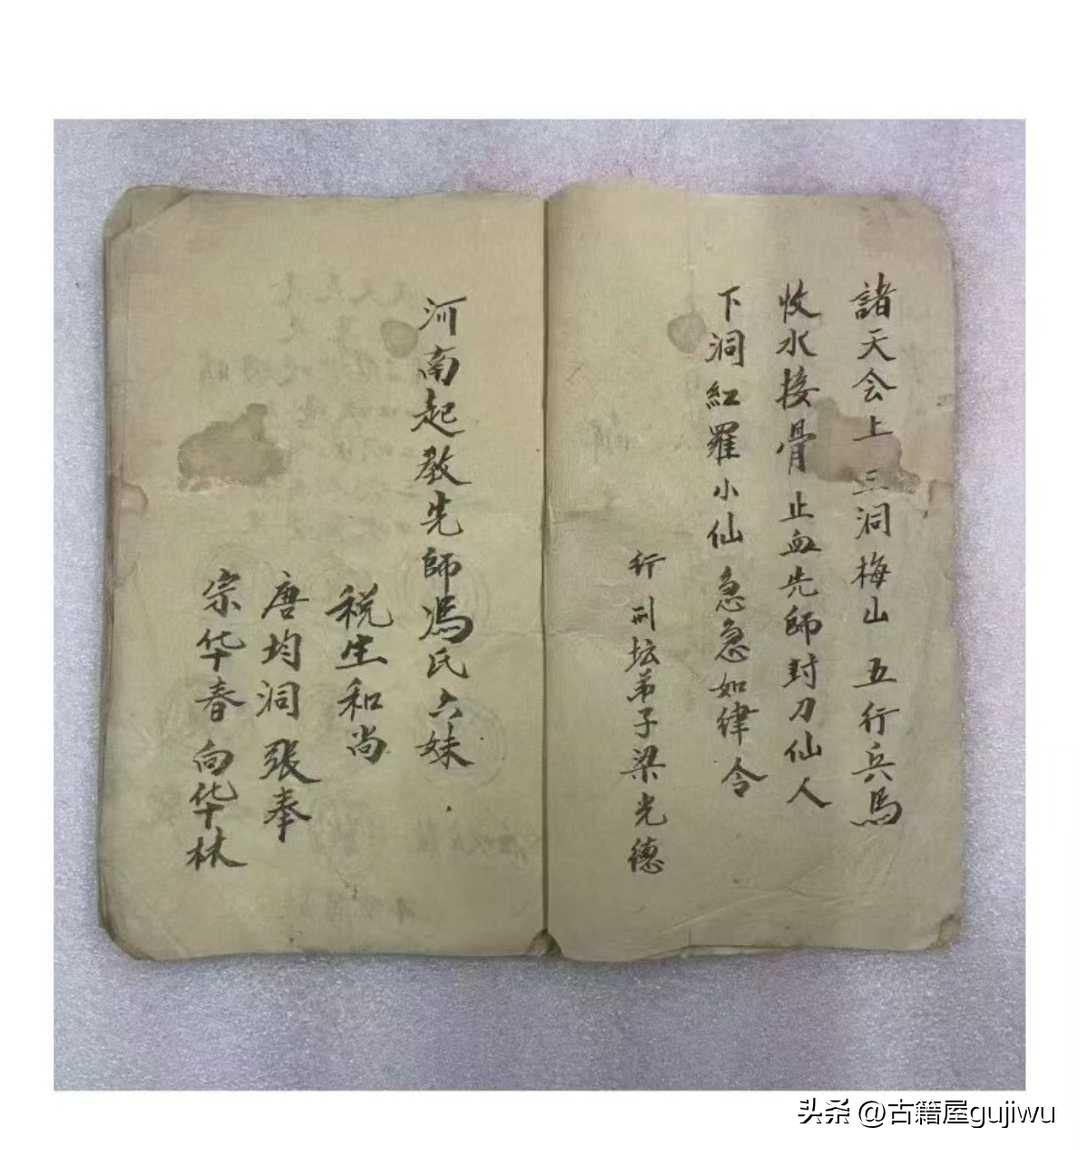 諸天会上三洞梅山五行兵馬
收水接骨止血先師封刀仙人
下洞紅羅小仙急急如律令
行刑坛弟子梁光德
河南起教先師馮氏六妹
税生和尚
唐均洞張奉
宗华春向华林
头条 @古籍屋gujiwu